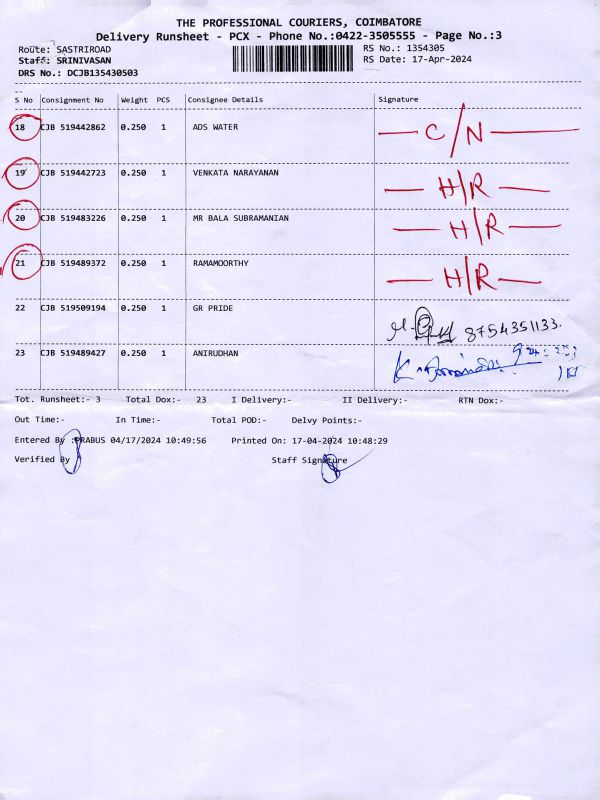 THE PROFESSIONAL COURIERS, COIMBATORE
Delivery Runsheet - PCX - Phone No.:0422-3505555 - Page No.:3
Route: SASTRIROAD RS No.: 1354305
Staff: SRINIVASAN RS Date: 17-Apr-2024
DRS No.: DCJB135430503
S No Consignment No Weight PCS Consignee Details Signature
18 CJB 519442862 0.250 1 ADS WATER C/N
19 CJB 519442723 0.250 1 VENKATA NARAYANAN H/R
20 CJB 519483226 0.250 1 MR BALA SUBRAMANIAN H/R
21 CJB 519489372 0.250 1 RAMAMOORTHY H/R
22 CJB 519509194 0.250 1 GR PRIDE 8754351133.
23 CJB 519489427 0.250 1 ANIRUDHAN
Tot. Runsheet:- 3 Total Dox:- 23 I Delivery:- II Delivery:- RTN Dox:-
Out Time:- In Time:- Total POD:- Delvy Points:-
Entered By :PRABUS 04/17/2024 10:49:56 Printed On: 17-04-2024 10:48:29
Verified By Staff Signature